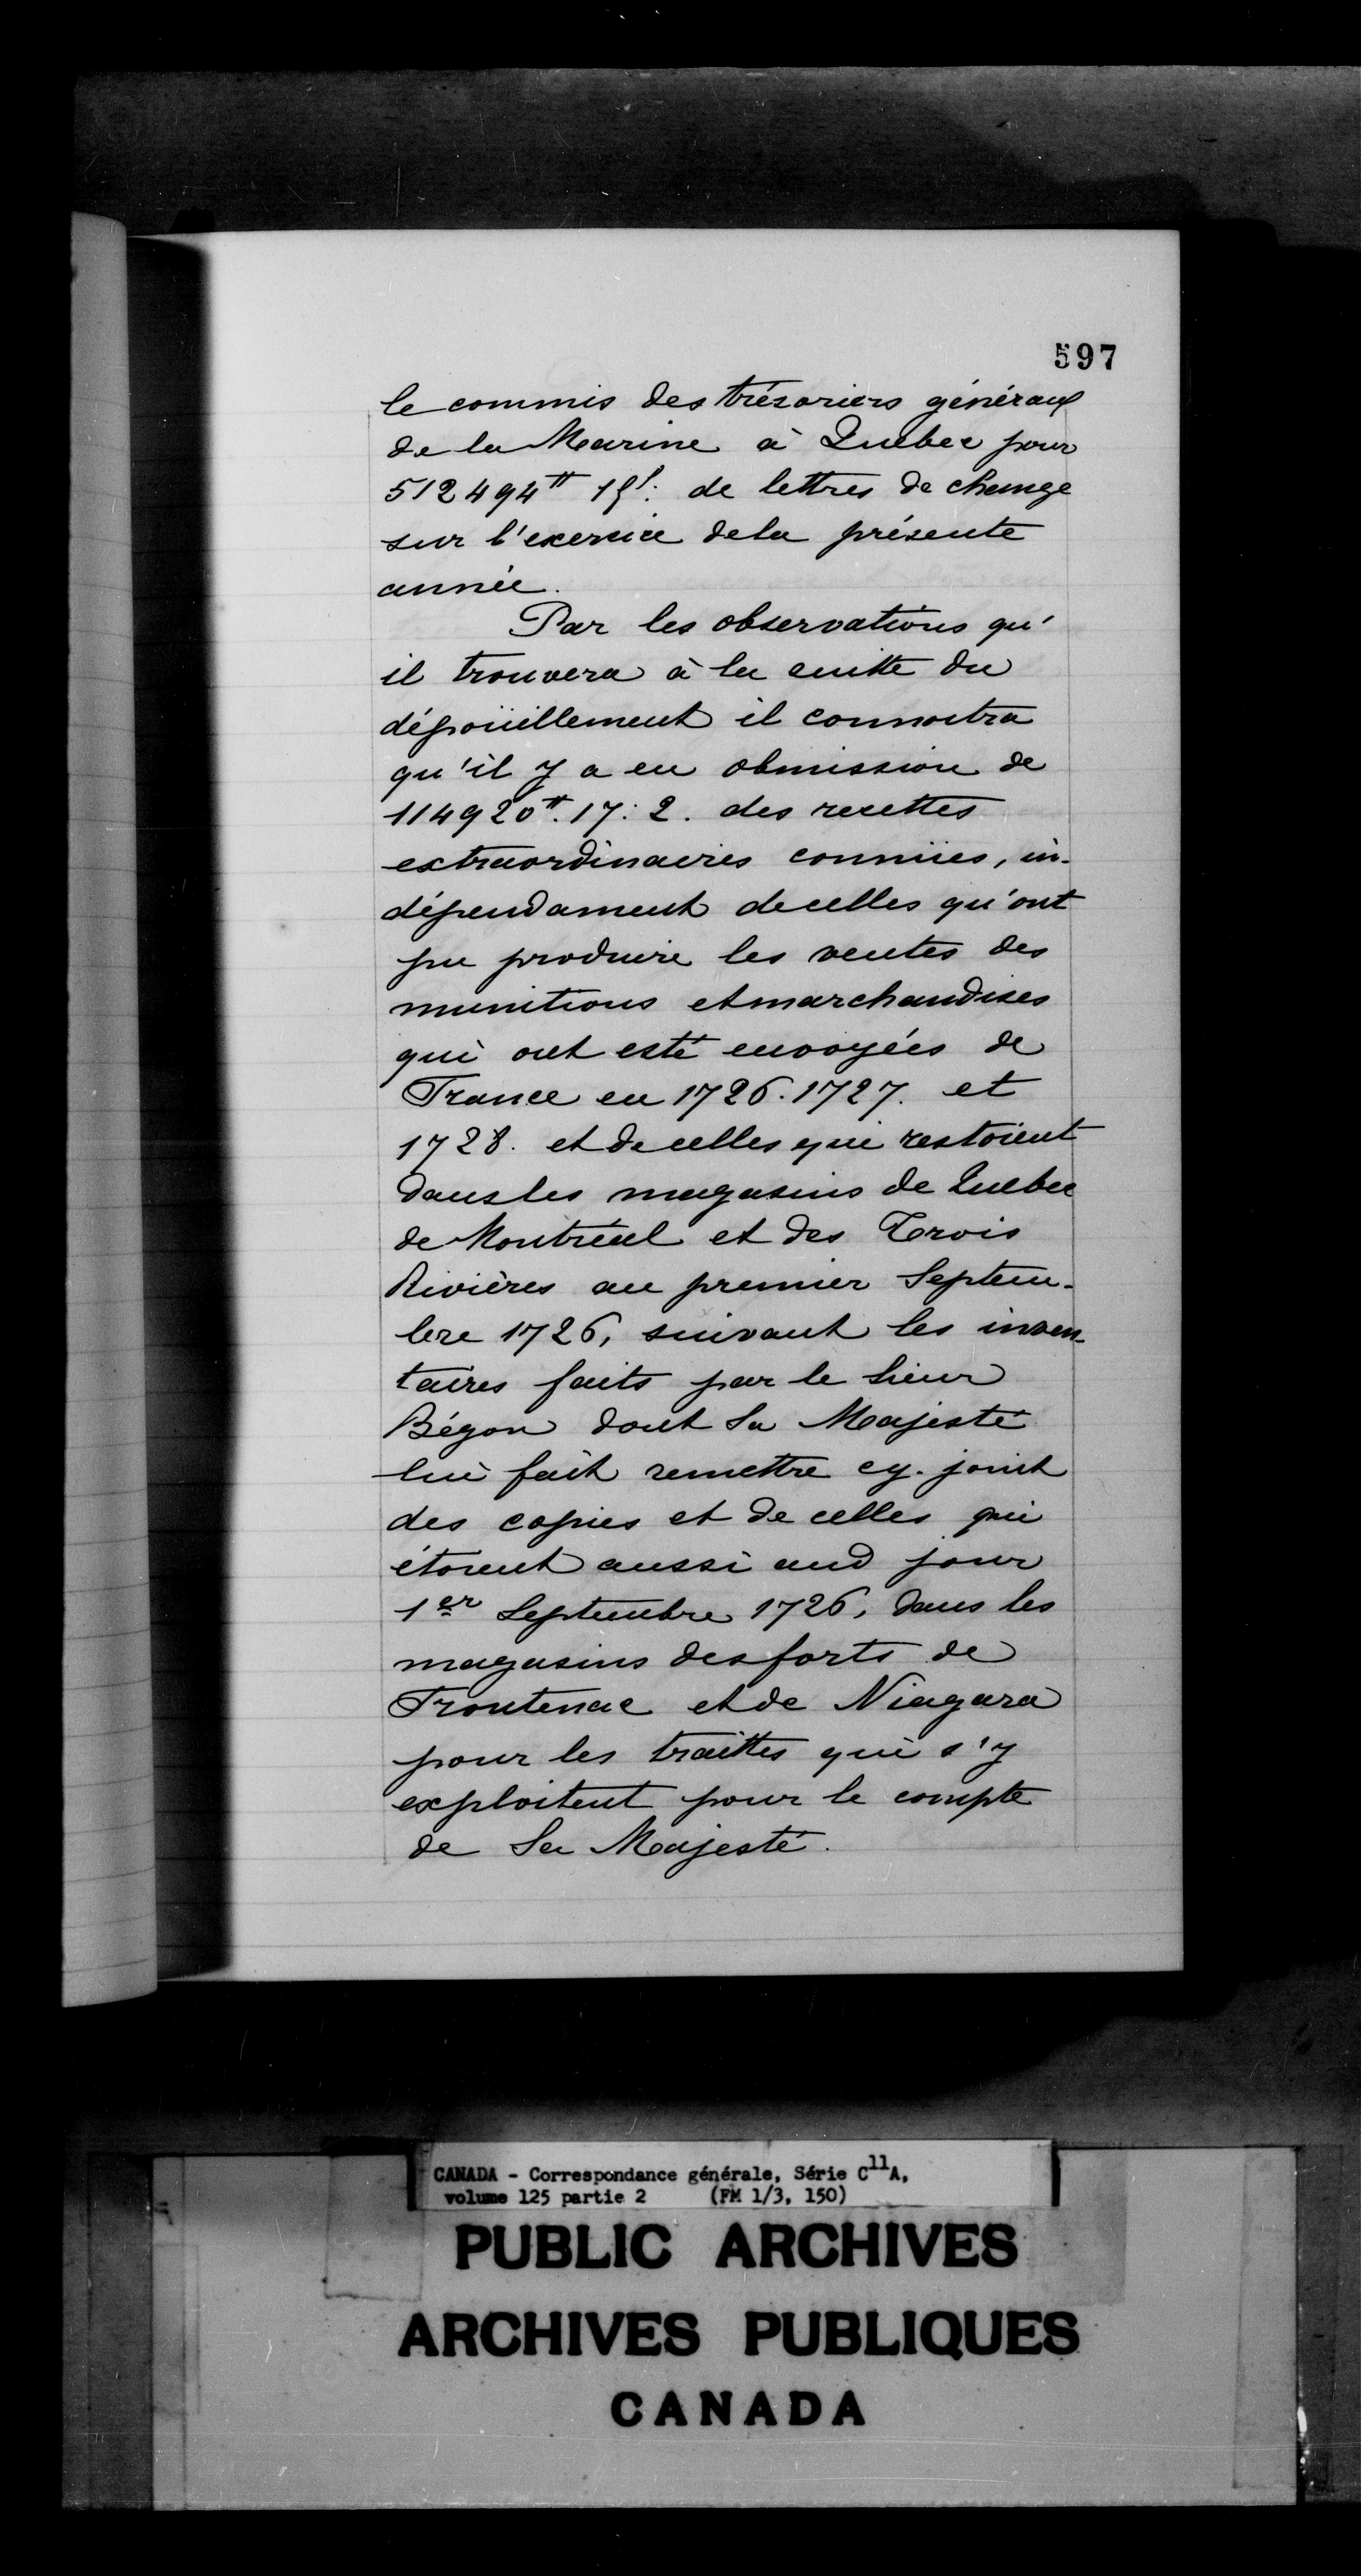 597
le commis des trésoriers généraux
de la Marine à Quebec pour
512494ᵗᵗ 15ˢ: de lettres de change
sur l'exercice dela présente
année.
Par les observations qu'
il trouvera à la suitte du
dépoüillement il connoitra
qu'il y a eu obmission de
114920ᵗᵗ. 17: 2. des recettes
extraordinaires connües, in-
dépendament decelles qu'ont
pu produire les ventes des
munitions et marchandises
qui ont esté envoyées de
France en 1726. 1727. et
1728. et de celles qui restoient
dans les magasins de Quebec
de Montréal et des Trois
Rivières au premier Septem-
bre 1726, suivant les inven-
taires faits par le Sieur
Bégon dont Sa Majesté
lui fait remettre cy. joint
des copies et de celles qui
étoient aussi aud jour
1er Septembre 1726, dans les
magasins des forts de
Frontenac et de Niagara
pour les traittes qui s'y
exploitent pour le compte
de Sa Majesté.
CANADA - Correspondance générale, Série C11A,
volume 125 partie 2 (FM 1/3, 150)
PUBLIC ARCHIVES
ARCHIVES PUBLIQUES
CANADA